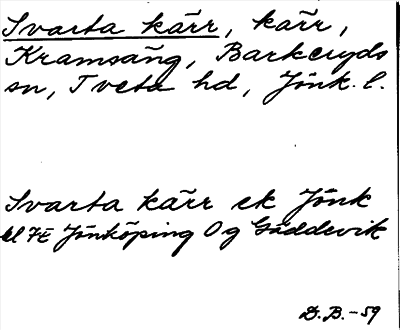 Svarta kärr, kärr,
Kramsäng, Barkeryds
sn, Tveta hd, Jönk. l.
Svarta kärr ek Jönk
bl 7E Jönköping Og Gäddevik
D.B.-59